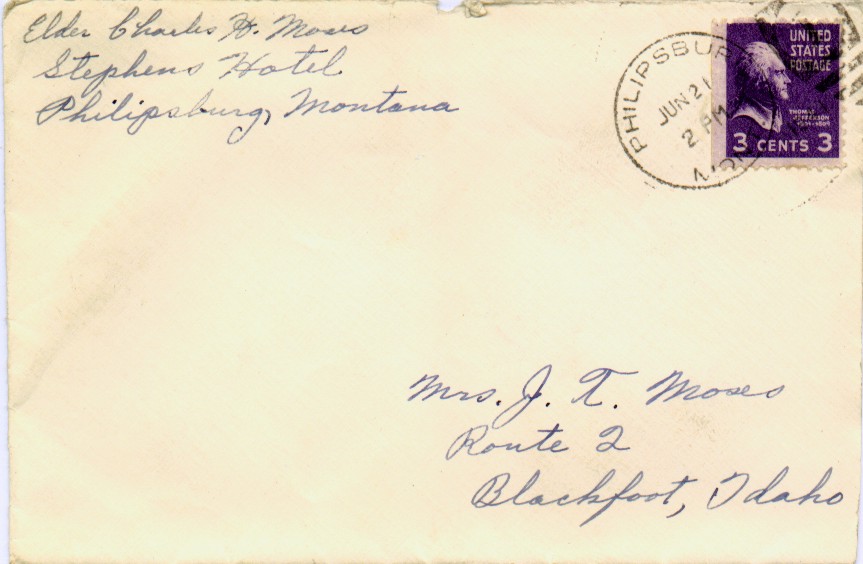 Elder Charles H. Moses
Stephens Hotel
Philipsburg, Montana
PHILIPSBUR
JUN 21
2 PM
MONT
UNITED
STATES
POSTAGE
THOMAS
JEFFERSON
3 CENTS 3
Mrs. J. T. Moses
Route 2
Blackfoot, Idaho